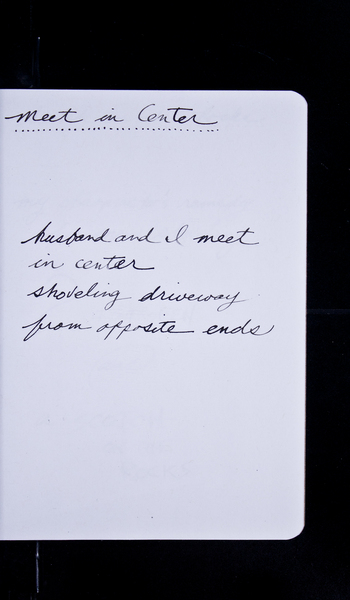 Meet in Center
husband and I meet
in center
shoveling driveway
from opposite ends